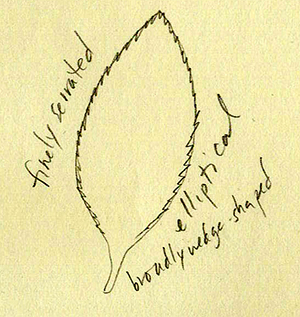 finely serrated
elliptical
broadly wedge-shaped